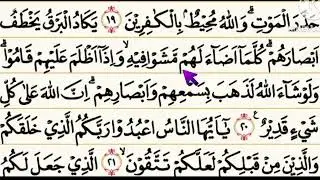 حَذَرَ الْمَوْتِ ۗ وَاللّٰهُ مُحِيْطٌۢ بِالْكٰفِرِيْنَ ١٩ يَكَادُ الْبَرْقُ يَخْطَفُ
اَبْصَارَهُمْ ۗ كُلَّمَآ اَضَاۤءَ لَهُمْ مَّشَوْا فِيْهِ ۙ وَاِذَآ اَظْلَمَ عَلَيْهِمْ قَامُوْا ۗ
وَلَوْ شَاۤءَ اللّٰهُ لَذَهَبَ بِسَمْعِهِمْ وَاَبْصَارِهِمْ ۗ اِنَّ اللّٰهَ عَلٰى كُلِّ
شَيْءٍ قَدِيْرٌ ࣖ ٢٠ يٰٓاَيُّهَا النَّاسُ اعْبُدُوْا رَبَّكُمُ الَّذِيْ خَلَقَكُمْ
وَالَّذِيْنَ مِنْ قَبْلِكُمْ لَعَلَّكُمْ تَتَّقُوْنَ ۙ ٢١ الَّذِيْ جَعَلَ لَكُمُ